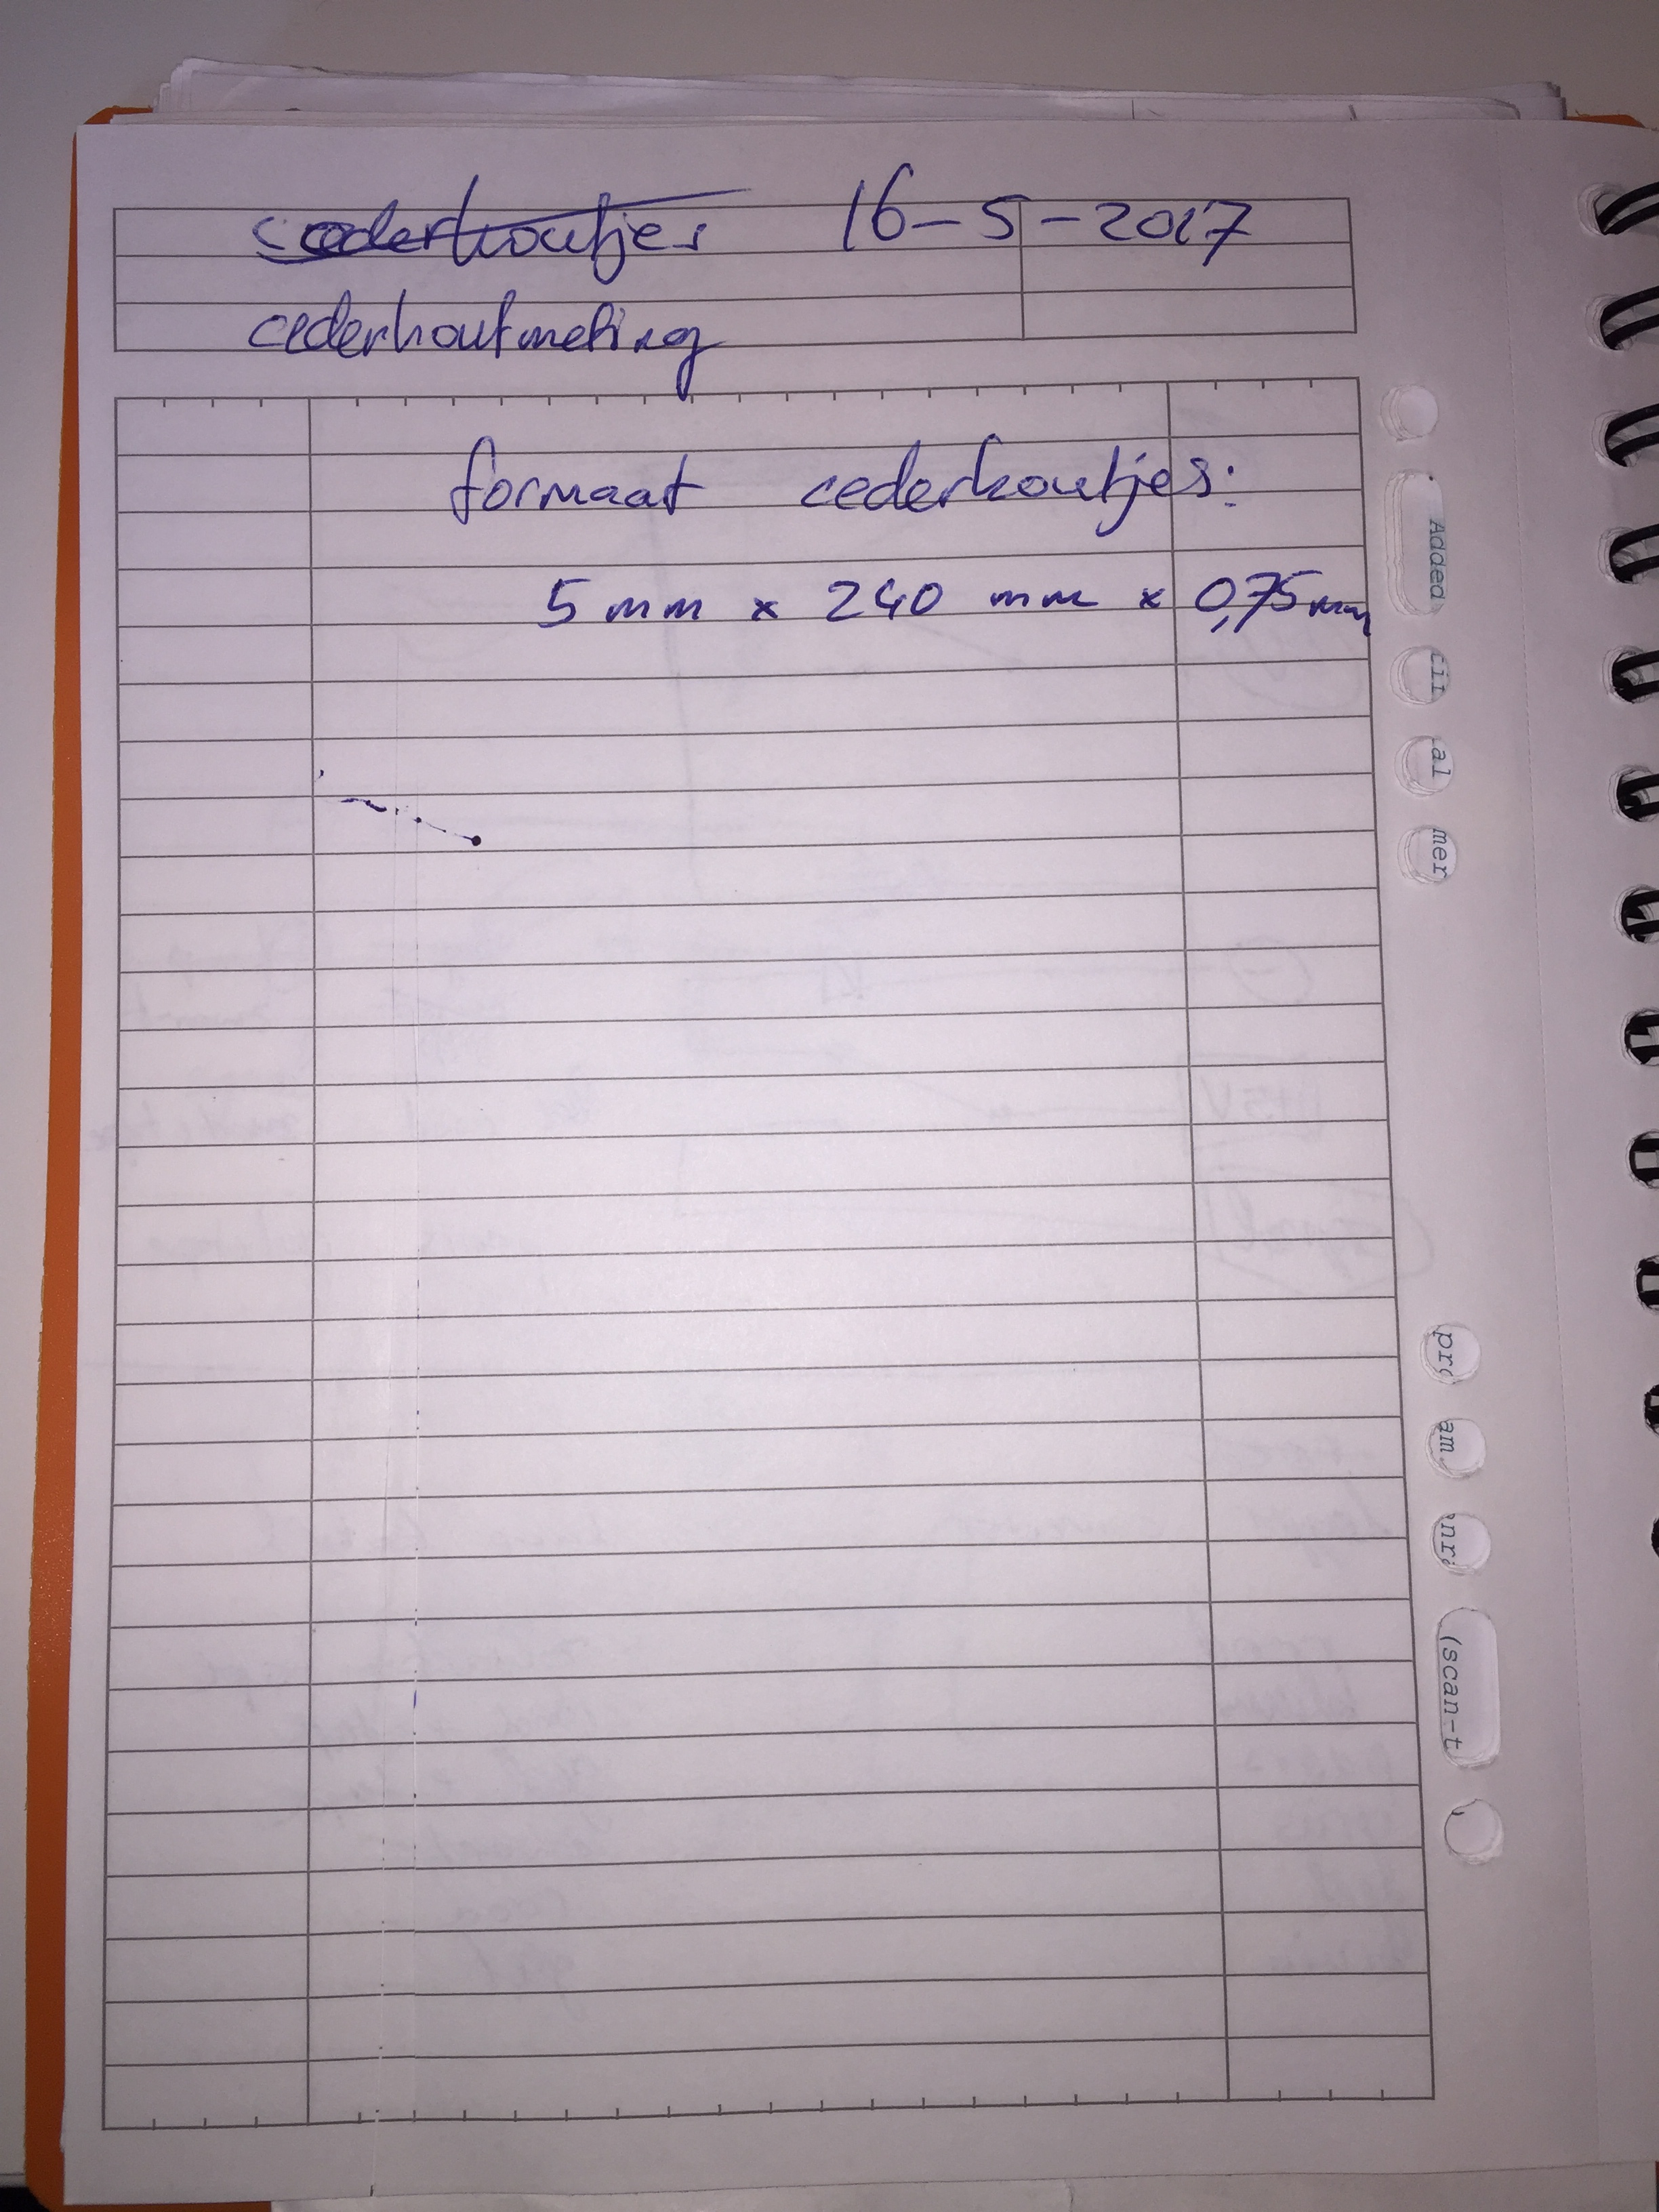 cederhoutjes 16-5-2017
cederhoutmeting
formaat cederhoutjes:
5 mm x 240 mm x 0,75 mm
Added
al
mer
am.
(scan-t